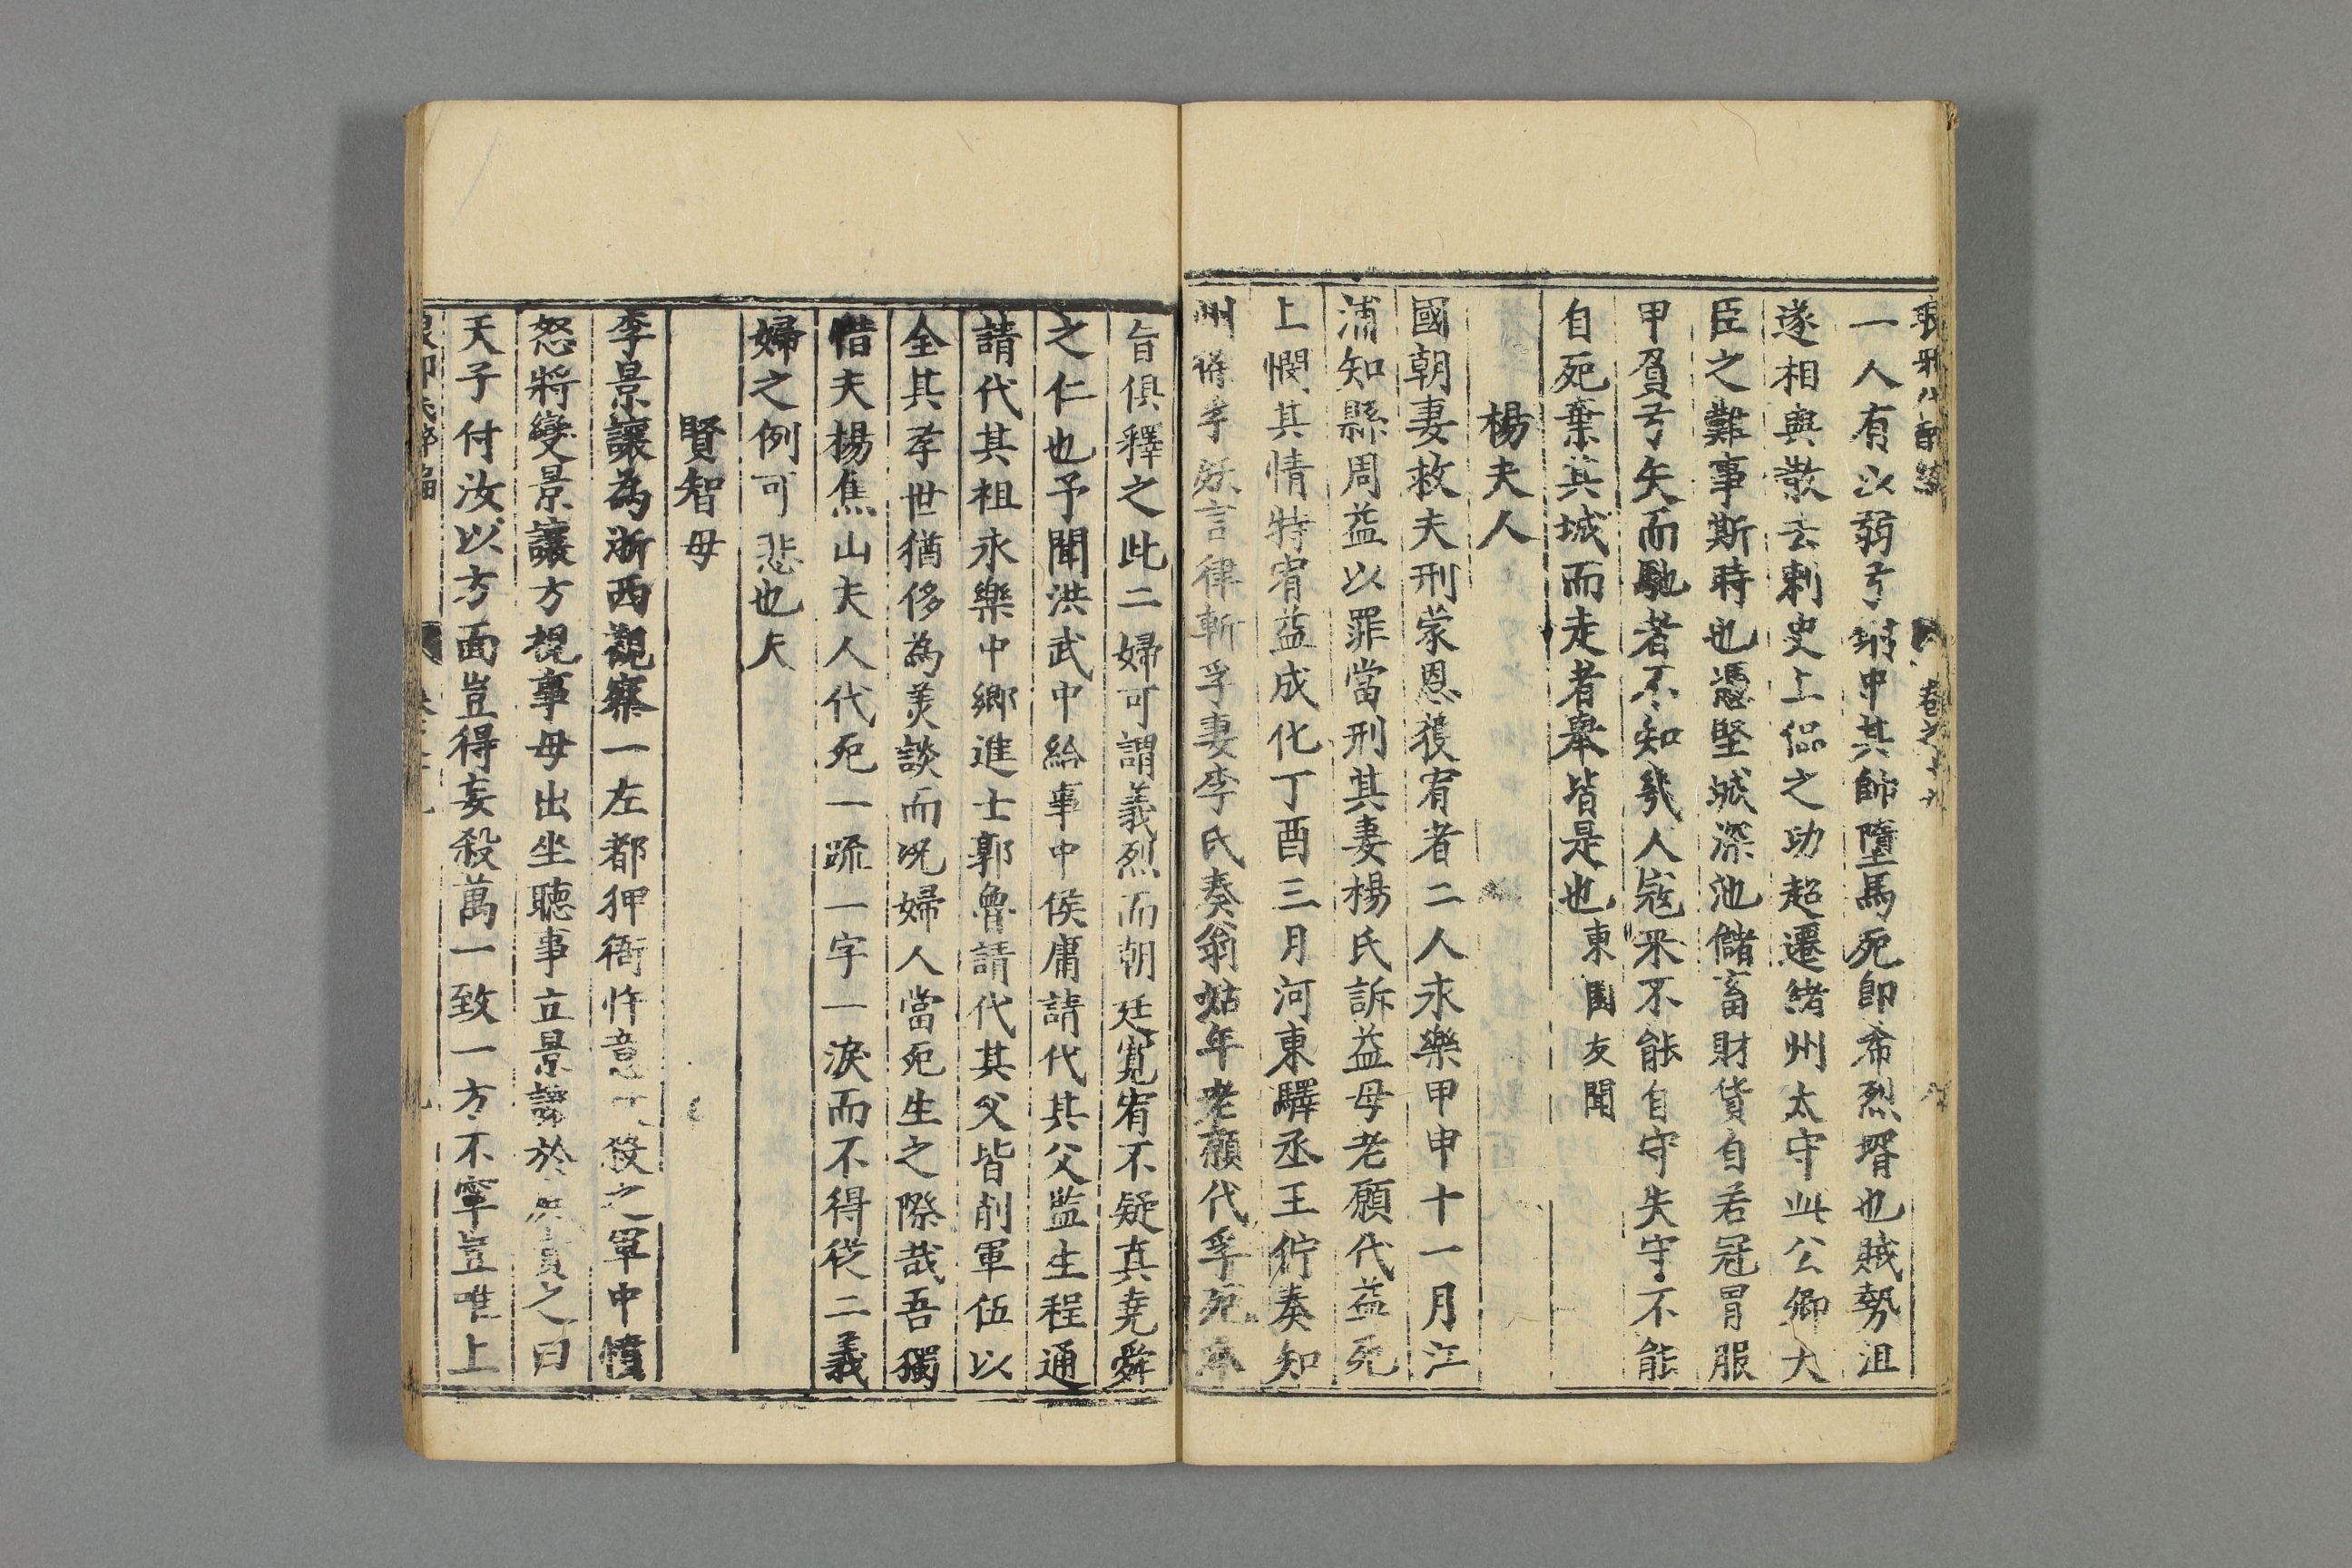 卷之十九
一人有以弱弓射中其帥墮馬死即希烈壻也賊勢沮
遂相與散去刺史上侃之功超遷緒州太守此公卿大
臣之難事斯時也憑堅城深池儲畜財貨自若冠冐服
甲負弓矢而馳者不知幾人寇来不能自守失守不能
自死棄其城而走者舉皆是也東園友聞
楊夫人
國朝妻救夫刑蒙恩獲宥者二人永樂甲申十一月江
浦知縣周益以罪當刑其妻楊氏訴益母老願代益死
上憫其情特宥益成化丁酉三月河東驛丞王佇奏知
州孚妖言律斬孚妻李氏奏翁姑年老願代孚死
旨俱釋之此二婦可謂義烈而朝廷寬宥不疑真堯舜
之仁也予聞洪武中給事中侯庸請代其父監生程通
請代其祖永樂中鄉進士郭魯請代其父皆削軍伍以
全其孝世猶侈為美談而况婦人當死生之際哉吾獨
惜夫楊焦山夫人代死一疏一字一淚而不得從二義
婦之例可悲也夫
賢智母
李景讓為浙西觀察一左都押衙忤意殺之軍中憤
怒將變景讓方視事母出坐聽事立景讓於責之曰
天子付汝以方面豈得妄殺萬一致一方不寧豈唯上